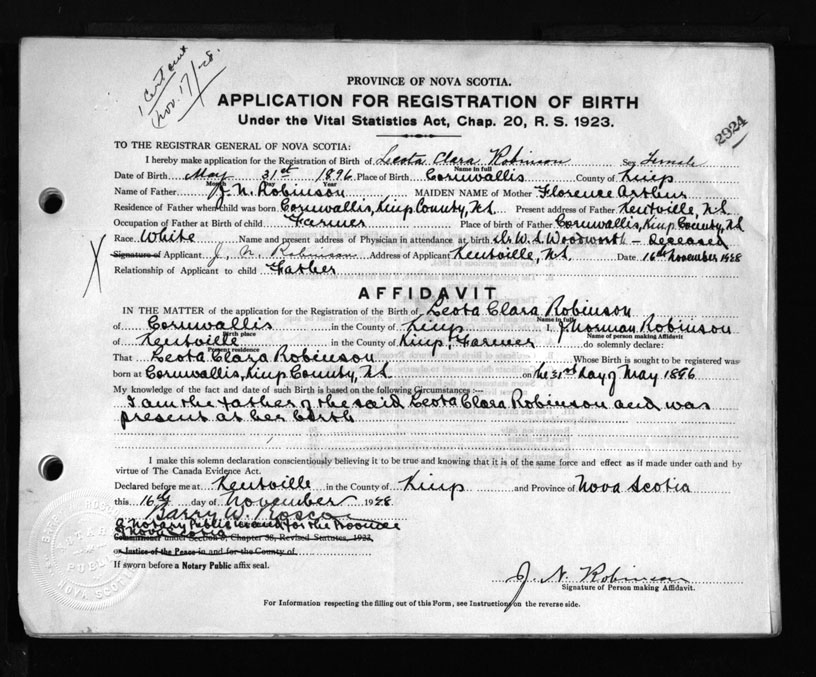 1 Cert out
Nov. 17/28.
PROVINCE OF NOVA SCOTIA.
APPLICATION FOR REGISTRATION OF BIRTH
Under the Vital Statistics Act, Chap. 20, R. S. 1923.
2924
TO THE REGISTRAR GENERAL OF NOVA SCOTIA:
I hereby make application for the Registration of Birth of Leota Clara Robinson Sex Female
Name in full
Date of Birth May 31st 1896 Place of Birth Cornwallis County of Kings
Month Day Year
Name of Father J. N. Robinson MAIDEN NAME of Mother Florence Arthur
Residence of Father when child was born Cornwallis, Kings County, N.S. Present address of Father Kentville, N.S.
Occupation of Father at Birth of child Farmer Place of birth of Father Cornwallis, Kings County, N.S
Race White Name and present address of Physician in attendance at birth Dr W. S. Woodworth - Deceased
X Signature of Applicant J. N. Robinson Address of Applicant Kentville, N.S. Date 16th November 1928
Relationship of Applicant to child Father
AFFIDAVIT
IN THE MATTER of the application for the Registration of the Birth of Leota Clara Robinson
Name in full
of Cornwallis in the County of Kings I, J Norman Robinson
Birth place Name of person making Affidavit
of Kentville in the County of Kings, Farmer do solemnly declare:
Present residence
That Leota Clara Robinson Whose Birth is sought to be registered was
born at Cornwallis, Kings County, N.S. on the 31st day of May 1896
My knowledge of the fact and date of such Birth is based on the following Circumstances :—
I am the father of the said Leota Clara Robinson and was
present at her birth
I make this solemn declaration conscientiously believing it to be true and knowing that it is of the same force and effect as if made under oath and by
virtue of The Canada Evidence Act.
Declared before me at Kentville in the County of Kings and Province of Nova Scotia
this 16th day of November 1928
Barry W. Roscoe
A Notary Public in and for the Province
of Nova Scotia
Commissioner under Section 3, Chapter 38, Revised Statutes, 1923,
or Justice of the Peace in and for the County of
If sworn before a Notary Public affix seal.
NOTARY
PUBLIC
NOVA SCOTIA
J. N. Robinson
Signature of Person making Affidavit.
For Information respecting the filling out of this Form, see Instructions on the reverse side.